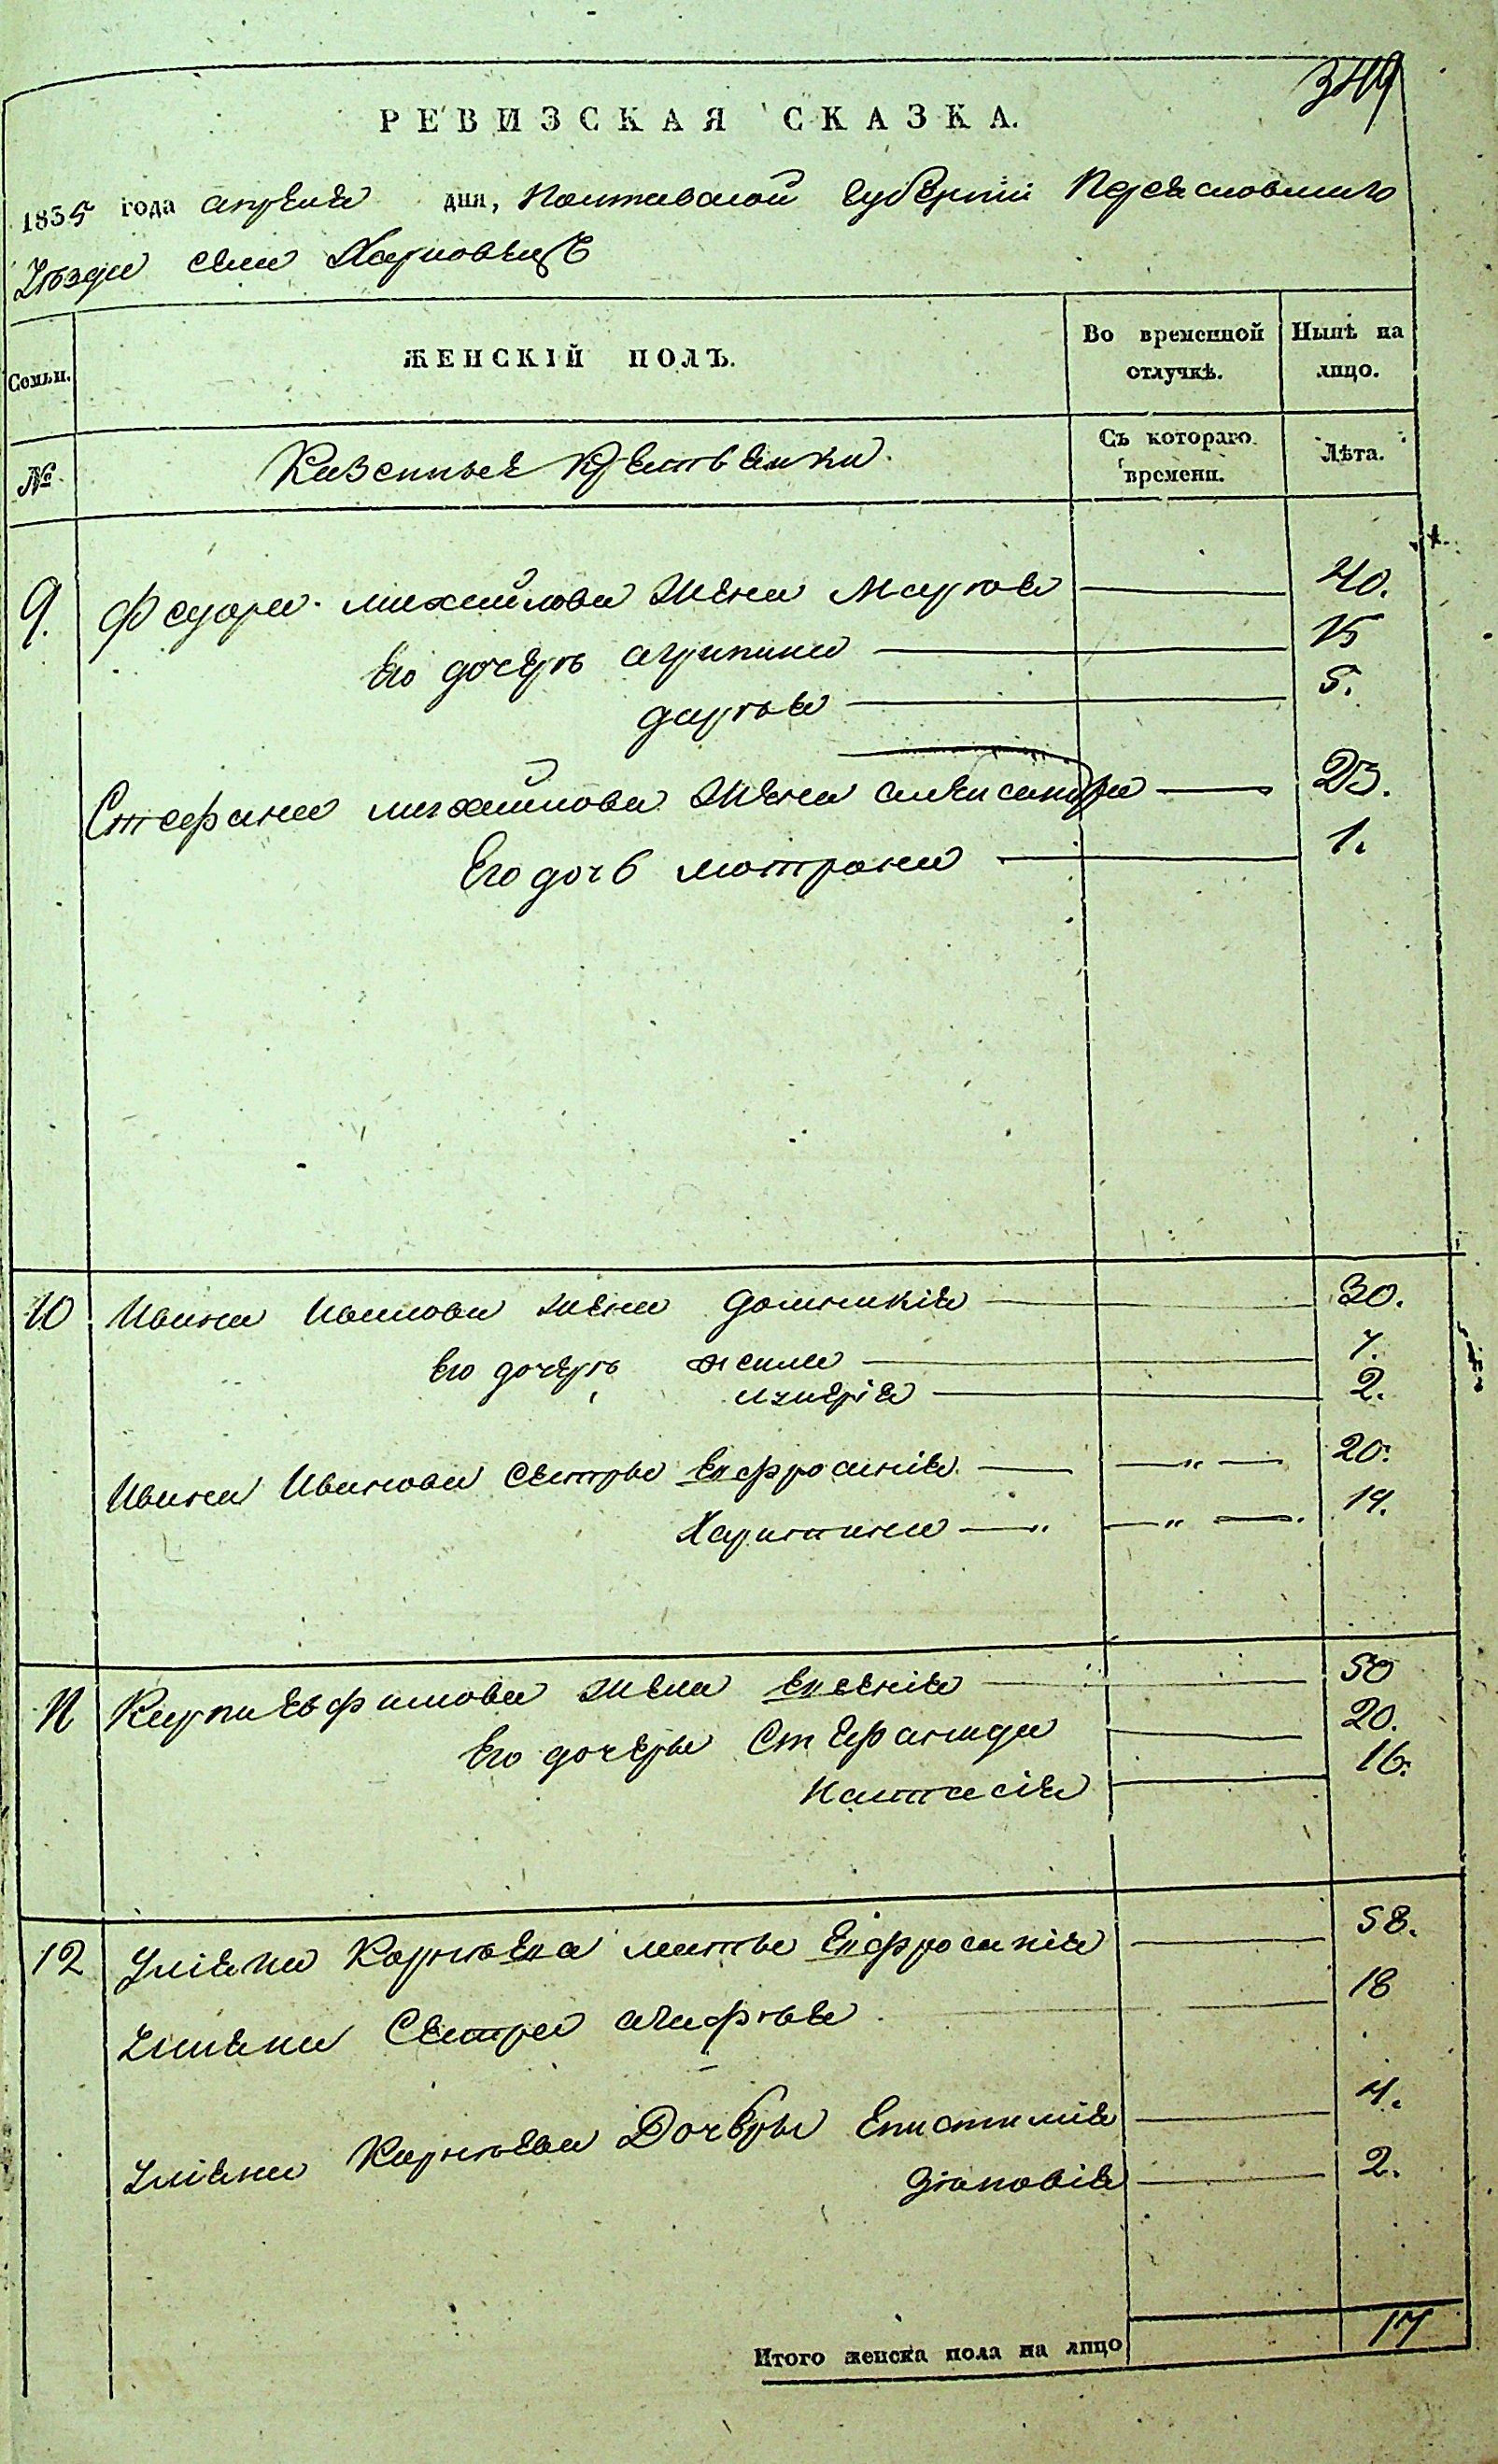 349
РЕВИЗСКАЯ СКАЗКА.
1835 года апреля дня, Полтавской губернии Переясловскаго
Уезда села Харковець
Семьи. ЖЕНСКІЙ ПОЛЪ. Во временной отлучкѣ. Нынѣ на лицо.
№ Казенные крестьянки. Съ котораго времени. Лѣта.
9. Федора михайлова жена Марѳа 40.
Его дочерѣ агрипина 15
дарья 5.
Стефана михайлова жена александра 25.
Его дочь мотрона 1.
10 Ивана Иванова жена домникія 30.
Его дочерѣ 7.
2.
Ивана Иванова сестры Евфросинія 20.
Харитина 19.
11 Карпа Ефимова жена Евгенія 50
Его дочеры Стефанида 20.
Настасія 16.
12 Уліяна Корнѣева мать Евфросинія 58.
Уліяна сестра агафія 18
Уліяна Корнѣева Дочеры Епистимія 4.
Зѣновія 2.
Итого женска пола на лицо 17